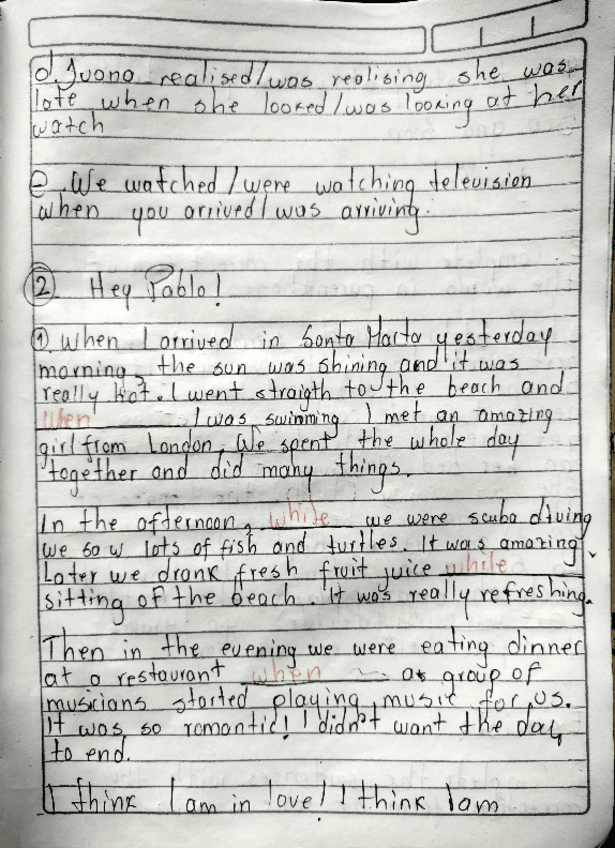 d. Juana realised/was realising she was
late when she looked/was looking at her
watch
e. We watched/were watching television
when you arrived/was arriving.
2 Hey Pablo!
1. When I arrived in Santa Marta yesterday
morning, the sun was shining and it was
really hot. I went straigth to the beach and
When I was swimming I met an amazing
girl from London, We spent the whole day
together and did many things.
In the afternoon, while we were scuba diving
we saw lots of fish and turtles. It was amazing.
Later we drank fresh fruit juice while
sitting of the beach. It was really refreshing.
Then in the evening we were eating dinner
at a restaurant when as group of
musicians started playing music for us.
It was so romantic! I didn't want the day
to end.
I think I am in love! I think Iam